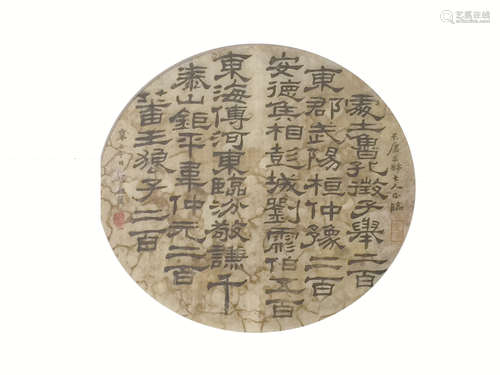 處士魯孔徵子舉二百
東郡武陽桓仲豫二百
安德侯相彭城劉彪伯五百
東海傅河東臨汾敬謙千
泰山鉅平韋仲元二百
蕃王狼子二百
艺狐在线